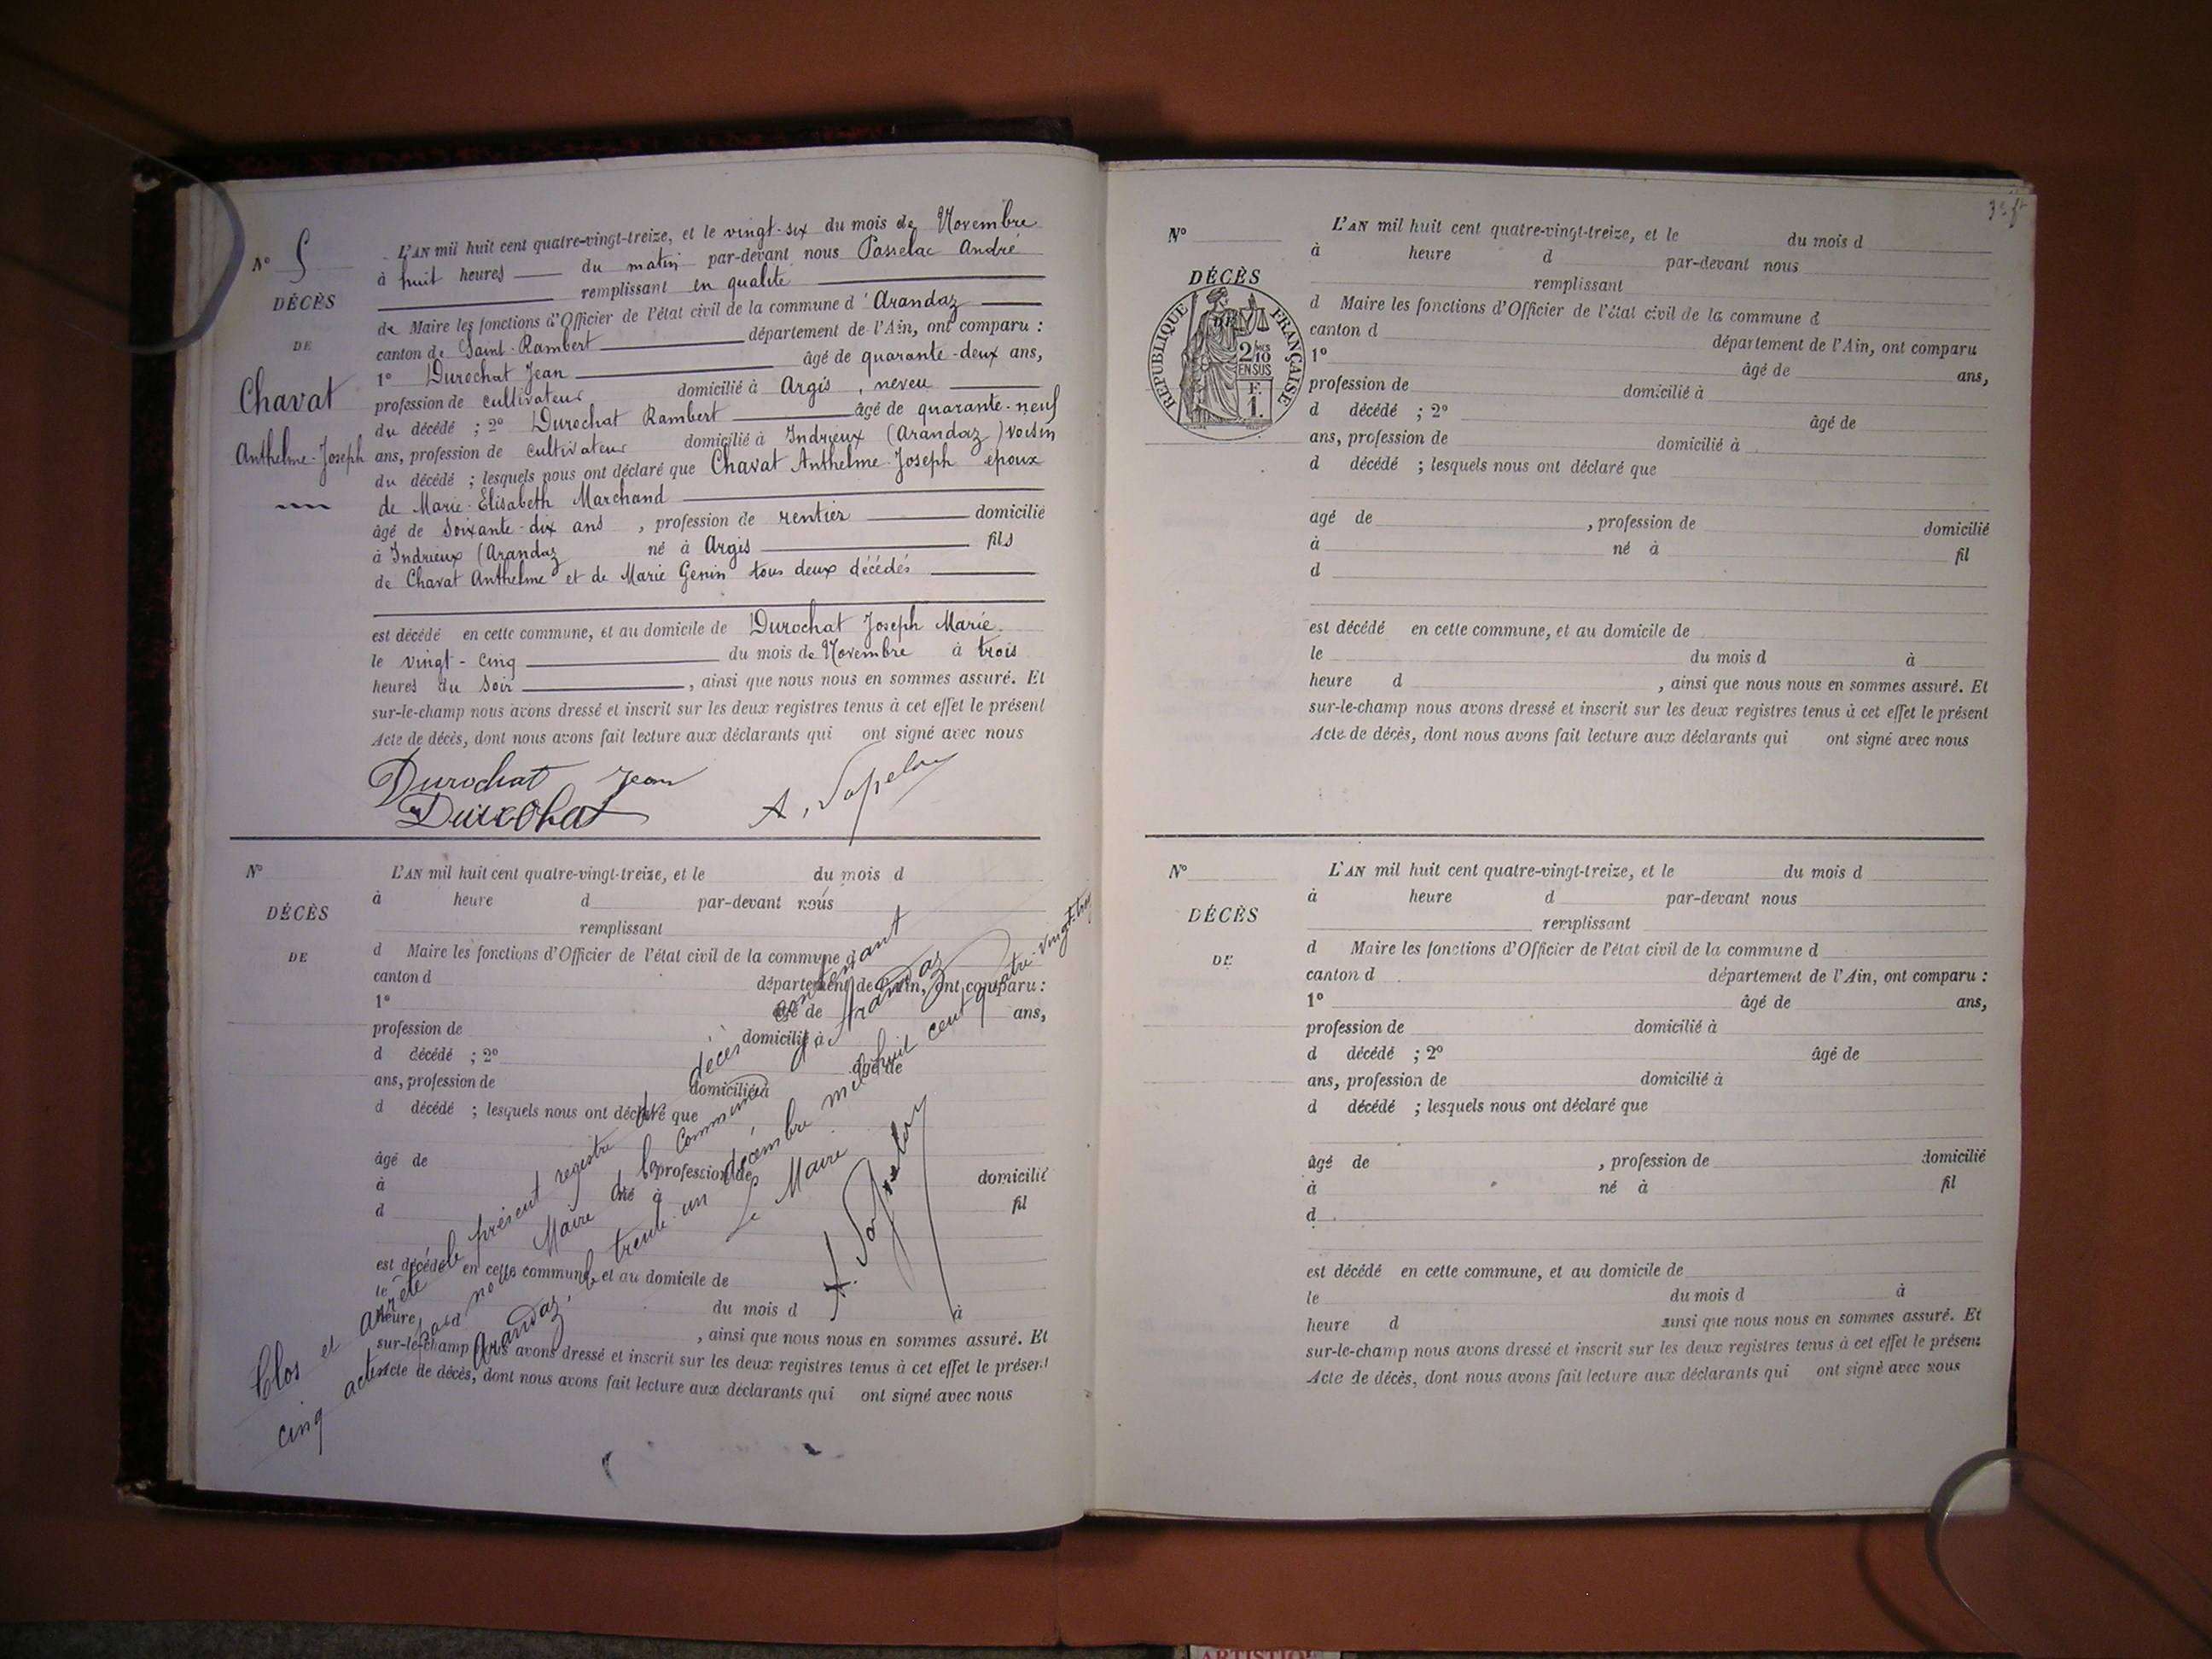 N° 5
DÉCÈS
DE
Chavat
Anthelme-Joseph
L'AN mil huit cent quatre-vingt-treize, et le vingt-six du mois de Novembre
à huit heures du matin par-devant nous Passelac André
remplissant en qualité
de Maire les fonctions d'Officier de l'état civil de la commune d'Arandaz
canton de Saint-Rambert département de l'Ain, ont comparu :
1° Durochat Jean âgé de quarante-deux ans,
profession de cultivateur domicilié à Argis, neveu
du décédé ; 2° Durochat Rambert âgé de quarante-neuf
ans, profession de cultivateur domicilié à Indrieux (Arandaz) voisin
du décédé ; lesquels nous ont déclaré que Chavat Anthelme-Joseph epoux
de Marie-Elisabeth Marchand
âgé de soixante-dix ans, profession de rentier domicilié
à Indrieux (Arandaz né à Argis fils
de Chavat Anthelme et de Marie Genin tous deux décédés
est décédé en cette commune, et au domicile de Durochat Joseph Marie
le vingt-cinq du mois de Novembre à trois
heures du soir, ainsi que nous nous en sommes assuré. Et
sur-le-champ nous avons dressé et inscrit sur les deux registres tenus à cet effet le présent
Acte de décès, dont nous avons fait lecture aux déclarants qui ont signé avec nous
Durochat Jean
Durochat
N°
DÉCÈS
DE
L'AN mil huit cent quatre-vingt-treize, et le du mois d
à heure d par-devant nous
remplissant
d Maire les fonctions d'Officier de l'état civil de la commune d
canton d département de l'Ain, ont comparu :
1° âgé de ans,
profession de domicilié à
d décédé ; 2° âgé de
ans, profession de domicilié à
d décédé ; lesquels nous ont déclaré que
âgé de , profession de domicilié
à né à fil
d
est décédé en cette commune, et au domicile de
le du mois d à
heure d , ainsi que nous nous en sommes assuré. Et
sur-le-champ nous avons dressé et inscrit sur les deux registres tenus à cet effet le présent
Acte de décès, dont nous avons fait lecture aux déclarants qui ont signé avec nous
Clos et arrêté le présent registre de décès contenant
cinq actes par nous Maire de la Commune d'Arandaz
Arandaz, le trente-un décembre mil huit cent quatre-vingt-treize
Le Maire
N°
DÉCÈS
DE
RÉPUBLIQUE FRANÇAISE
2/10 MES
EN SUS
F.
1.
L'AN mil huit cent quatre-vingt-treize, et le du mois d
à heure d par-devant nous
remplissant
d Maire les fonctions d'Officier de l'état civil de la commune d
canton d département de l'Ain, ont comparu
1° âgé de ans,
profession de domicilié à
d décédé ; 2° âgé de
ans, profession de domicilié à
d décédé ; lesquels nous ont déclaré que
agé de , profession de domicilié
à né à fil
d
est décédé en cette commune, et au domicile de
le du mois d à
heure d , ainsi que nous nous en sommes assuré. Et
sur-le-champ nous avons dressé et inscrit sur les deux registres tenus à cet effet le présent
Acte de décès, dont nous avons fait lecture aux déclarants qui ont signé avec nous
N°
DÉCÈS
DE
L'AN mil huit cent quatre-vingt-treize, et le du mois d
à heure d par-devant nous
remplissant
d Maire les fonctions d'Officier de l'état civil de la commune d
canton d département de l'Ain, ont comparu :
1° âgé de ans,
profession de domicilié à
d décédé ; 2° âgé de
ans, profession de domicilié à
d décédé ; lesquels nous ont déclaré que
âgé de , profession de domicilié
à né à fil
d
est décédé en cette commune, et au domicile de
le du mois d à
heure d ainsi que nous nous en sommes assuré. Et
sur-le-champ nous avons dressé et inscrit sur les deux registres tenus à cet effet le présent
Acte de décès, dont nous avons fait lecture aux déclarants qui ont signé avec nous